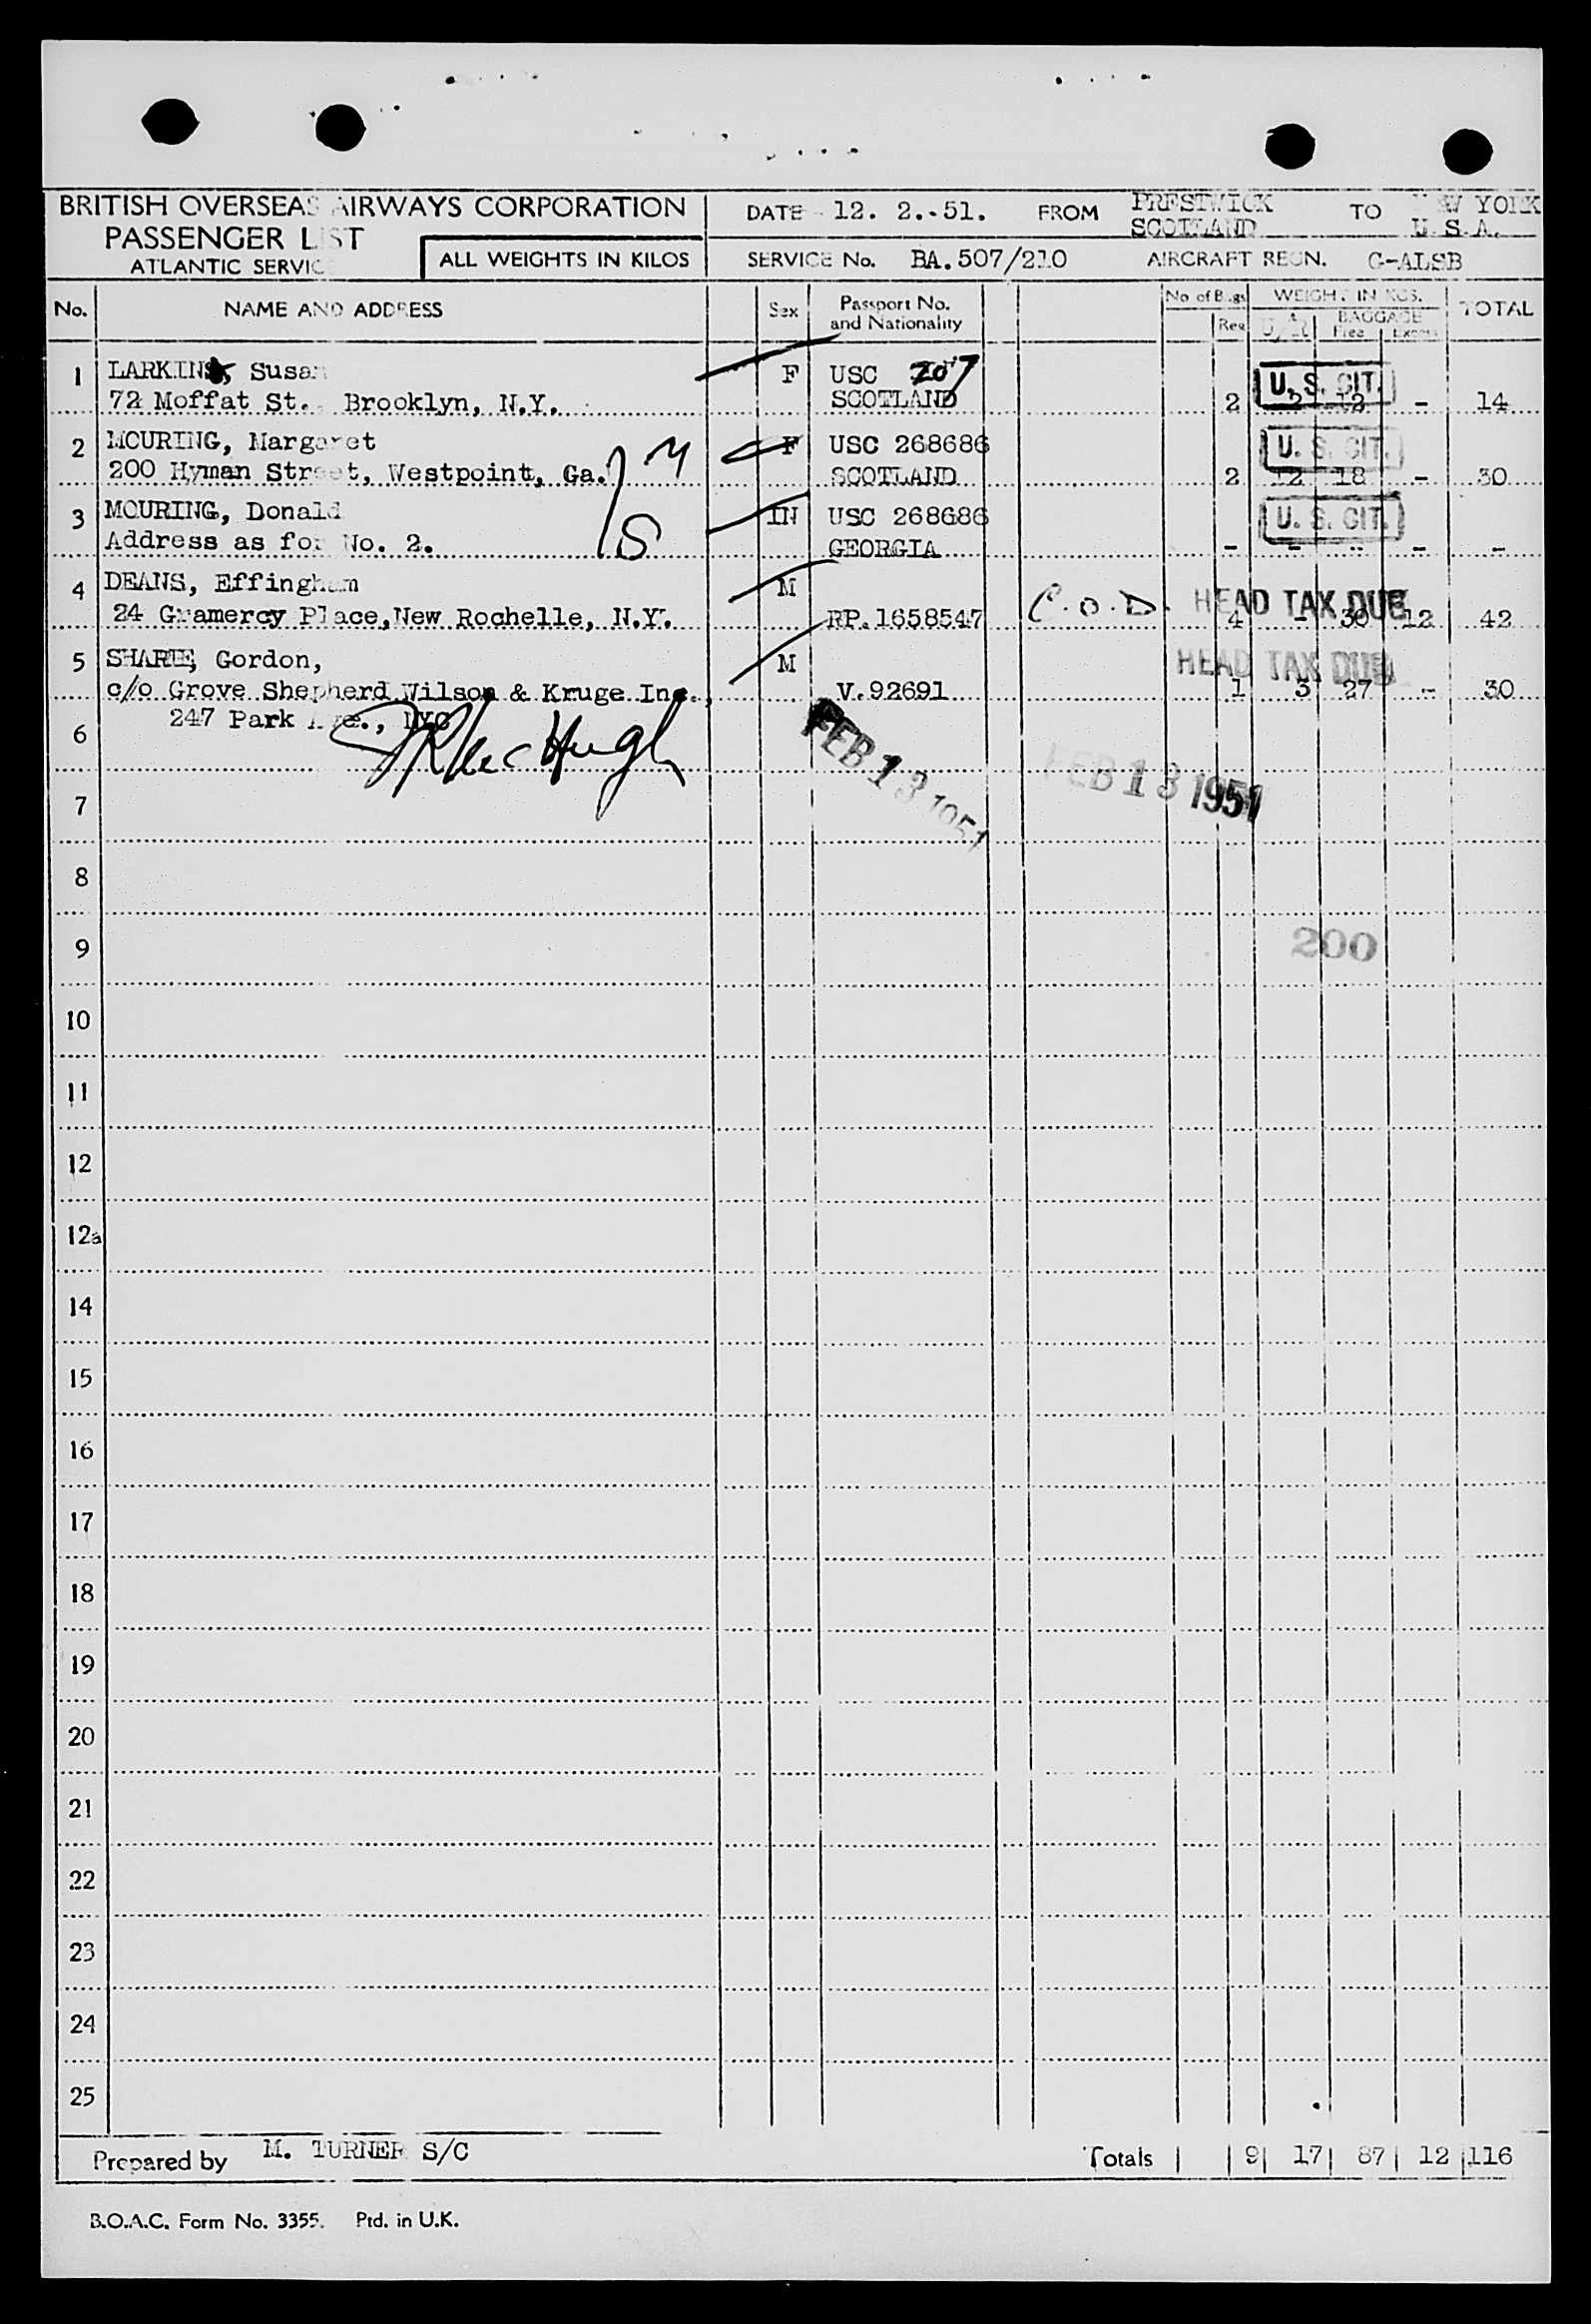 BRITISH OVERSEAS AIRWAYS CORPORATION
PASSENGER LIST
ATLANTIC SERVIC
ALL WEIGHTS IN KILOS
DATE 12. 2. 51. FROM PRESTWICK SCOTLAND TO NEW YORK U.S.A.
SERVICE No. BA.507/210 AIRCRAFT REGN. G-ALSB
No. NAME AND ADDRESS Sex Passport No. and Nationality No of Bags Reg WEIGHT IN KGS. BAGGAGE Free Excess TOTAL
1 LARKIN, Susan F USC 207 U.S. CIT.
72 Moffat St. Brooklyn, N.Y. SCOTLAND 2 2 12 - 14
2 MOURING, Margaret F USC 268686 U.S. CIT.
200 Hyman Street, Westpoint, Ga. SCOTLAND 2 12 18 - 30
3 MOURING, Donald IN USC 268686 U.S. CIT.
Address as for No. 2. GEORGIA - - - - -
4 DEANS, Effingham M HEAD TAX DUE
24 Gramercy Place, New Rochelle, N.Y. RP.1658547 C.O.D. 4 - 30 12 42
5 SHARTE, Gordon, M HEAD TAX DUE
c/o Grove Shepherd Wilson & Kruge Inc., V.92691 1 3 27 - 30
6 247 Park Ave., NYC
FEB 13 1951
FEB 13 1951
7
8
9 200
10
11
12
12a
14
15
16
17
18
19
20
21
22
23
24
25
Prepared by M. TURNER S/C Totals 9 17 87 12 116
B.O.A.C. Form No. 3355. Ptd. in U.K.